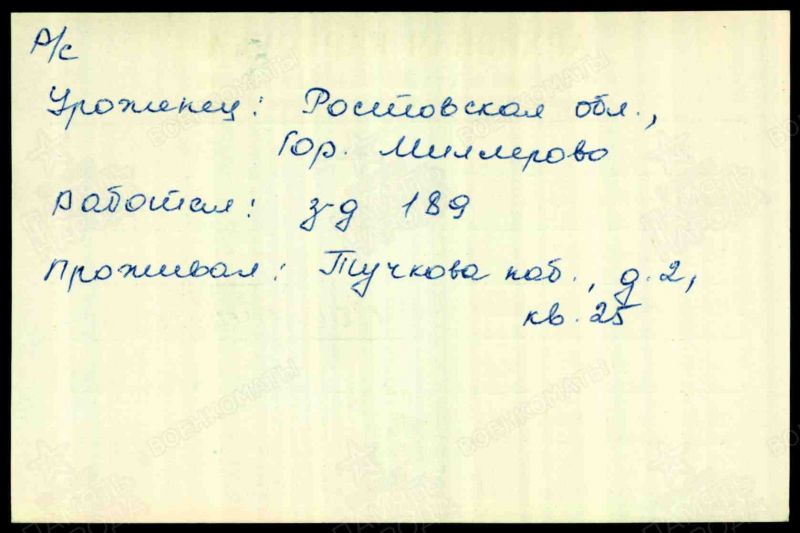 р/с
Уроженец: Ростовская обл.,
гор. Миллерово
Работал: з-д 189
Проживал: Тучкова наб., д. 2,
кв. 25
ВОЕНКОМАТЫ
ПАМЯТЬ НАРОДА